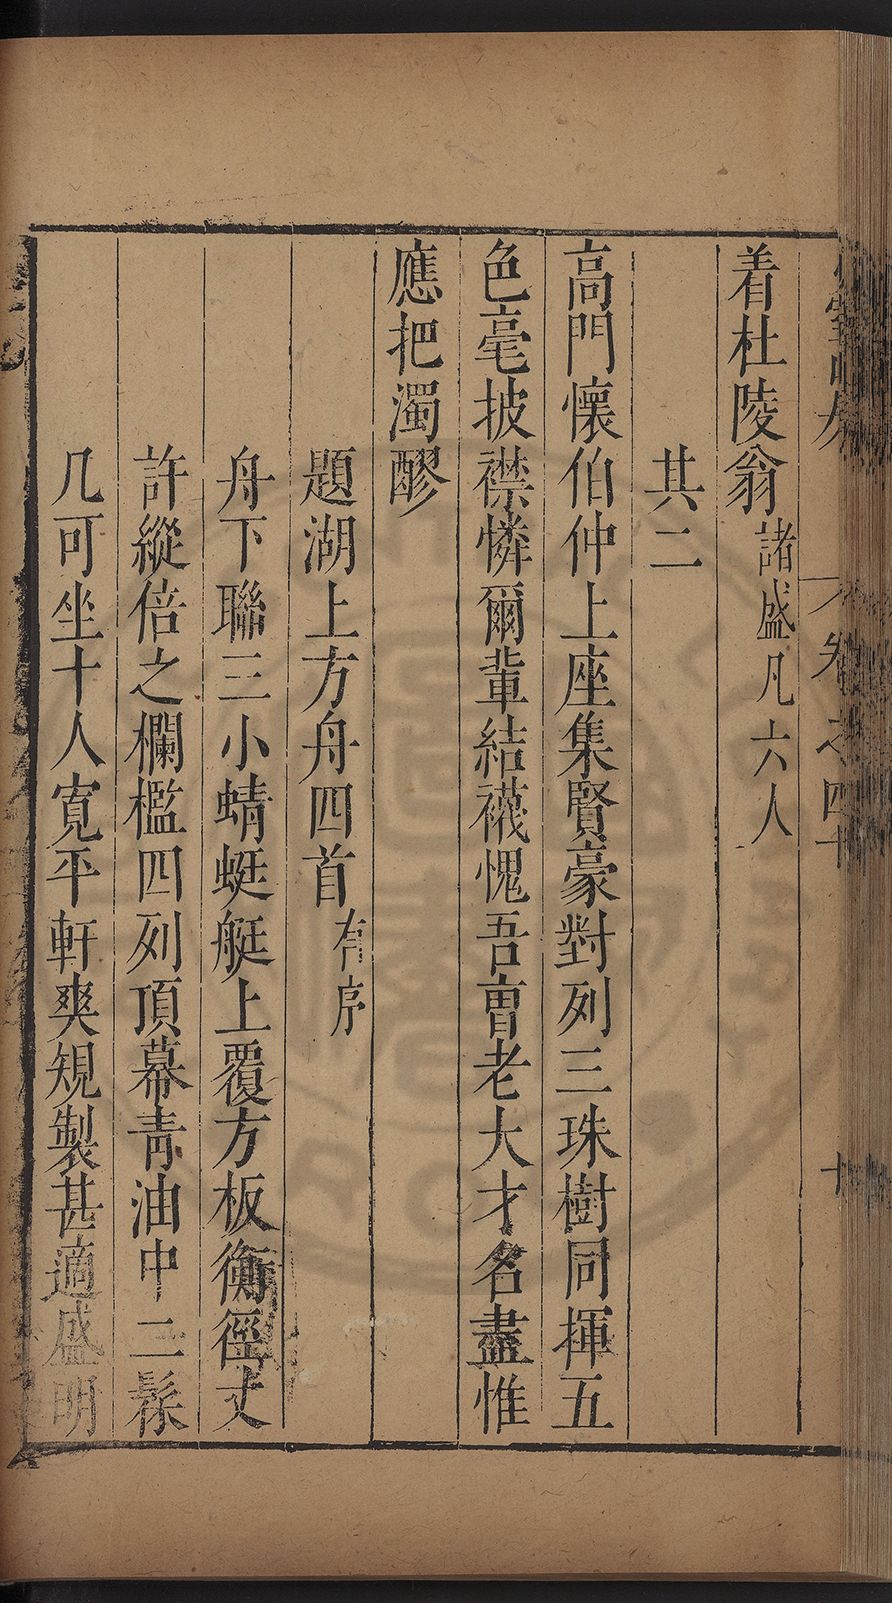 着杜陵翁諸盛凡六人
其二
高門懷伯仲上座集賢豪對列三珠樹同揮五
色毫披襟憐爾輩結襪愧吾曹老大才名盡惟
應把濁醪
題湖上方舟四首有序
舟下聯三小蜻蜓艇上覆方板衡徑丈
許縱倍之欄檻四列頂幕靑油中二髹
几可坐十人寬平軒爽規製甚適盛明